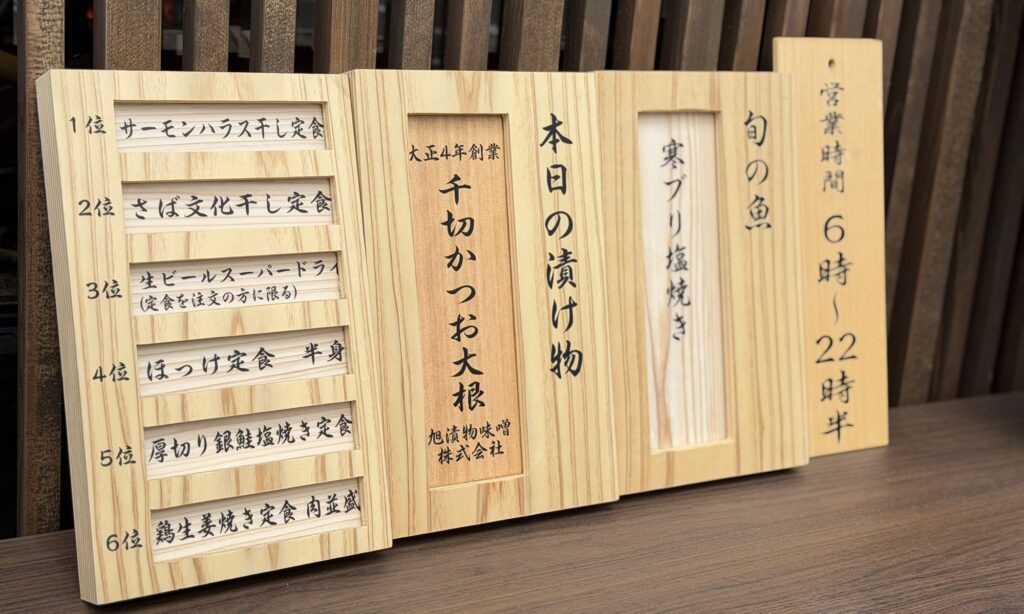 1位 サーモンハラス干し定食
2位 さば文化干し定食
3位 生ビールスーパードライ
(定食を注文の方に限る)
4位 ほっけ定食 半身
5位 厚切り銀鮭塩焼き定食
6位 鶏生姜焼き定食 肉並盛
本日の漬け物
大正4年創業
千切かつお大根
旭漬物味噌
株式会社
旬の魚
寒ブリ塩焼き
営業時間 6時〜22時半